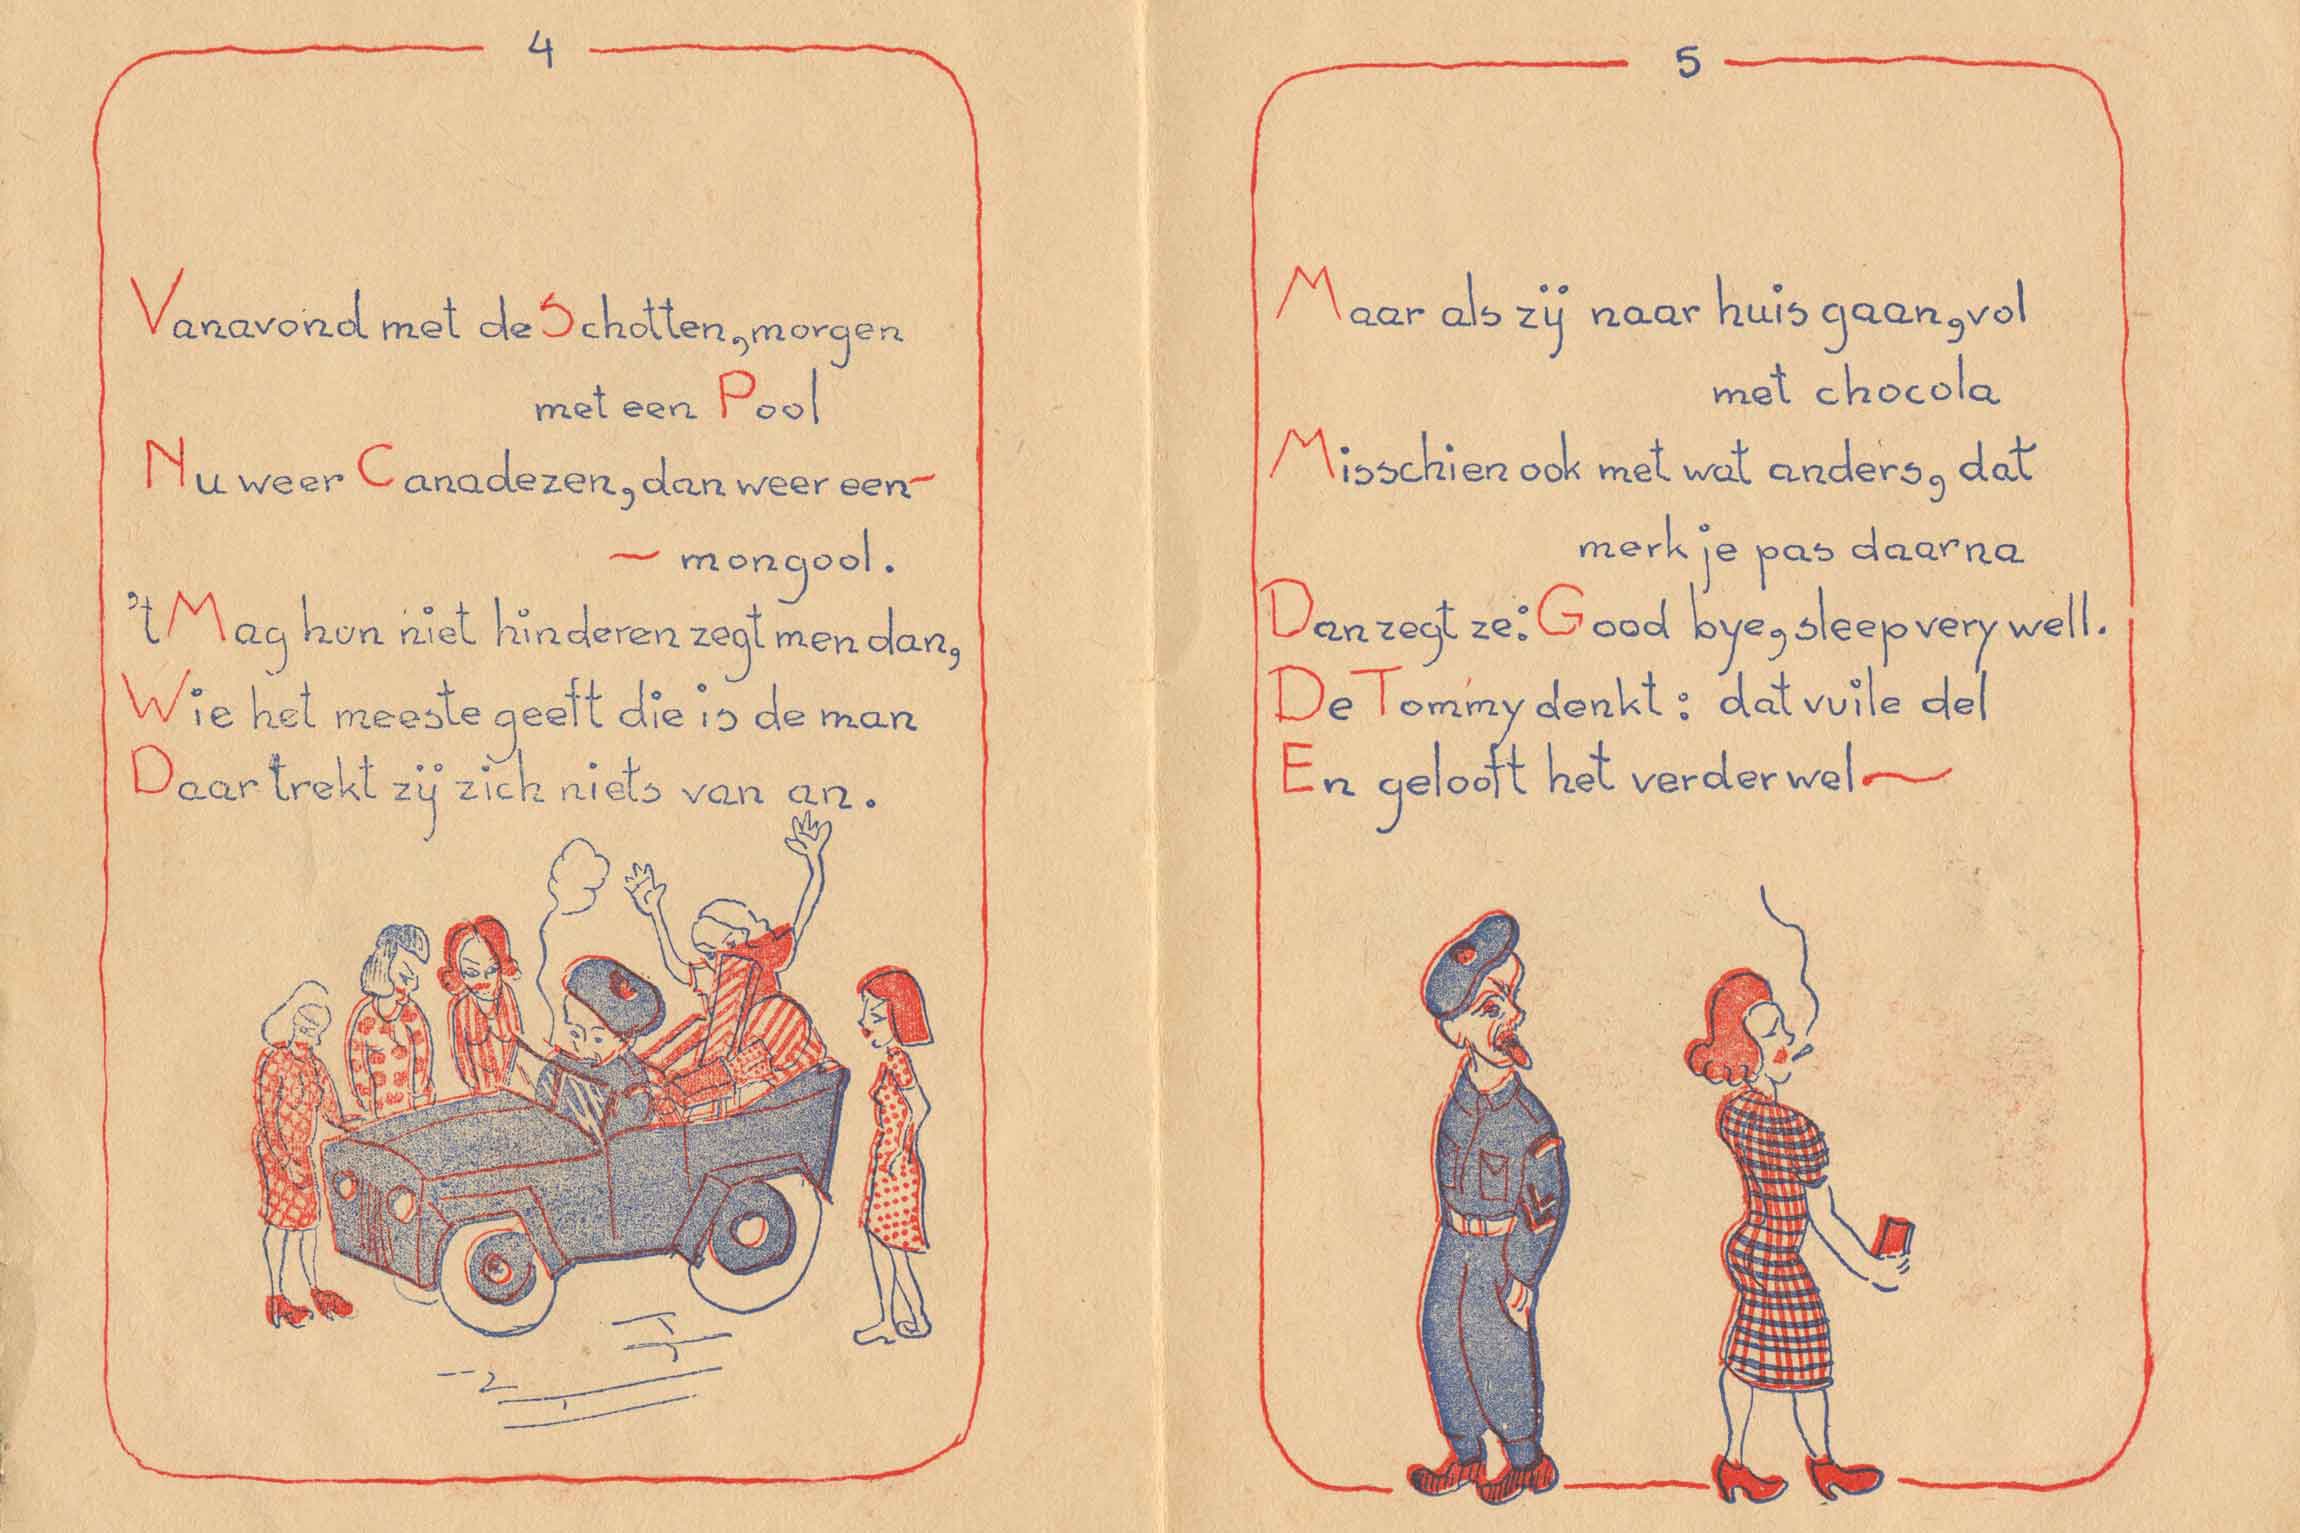 4
Vanavond met de Schotten, morgen
met een Pool
Nu weer Canadezen, dan weer een-
- mongool.
't Mag hun niet hinderen zegt men dan,
Wie het meeste geeft die is de man
Daar trekt zij zich niets van an.
5
Maar als zij naar huis gaan, vol
met chocola
Misschien ook met wat anders, dat
merk je pas daarna
Dan zegt ze: Good bye, sleep very well.
De Tommy denkt: dat vuile del
En gelooft het verder wel~